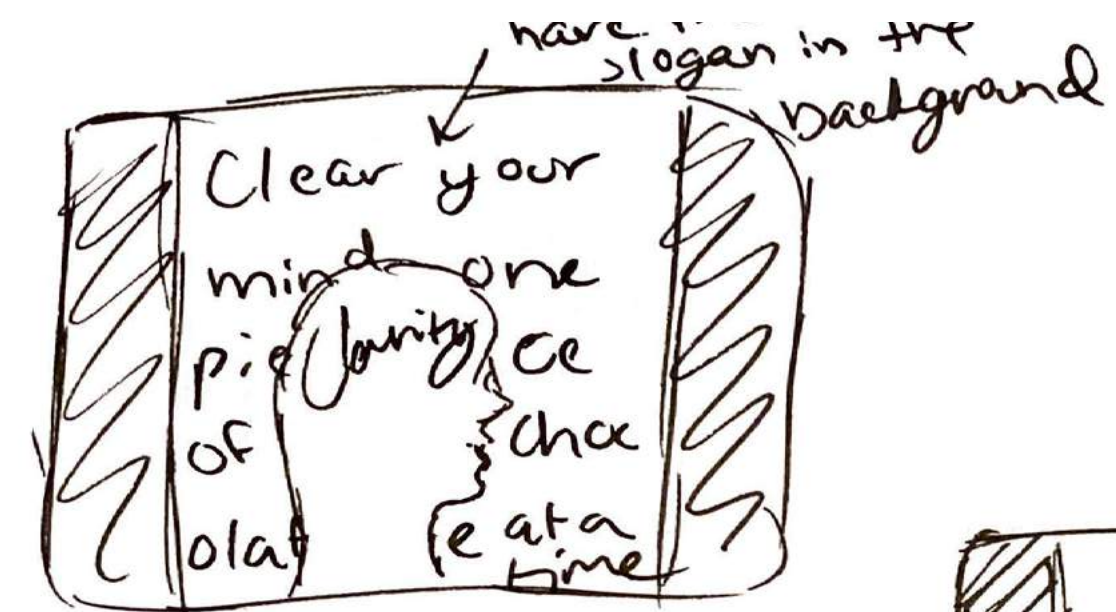 have
slogan in the
background
Clear your
mind one
pie Clarity ce
of choc
olat e at a
time